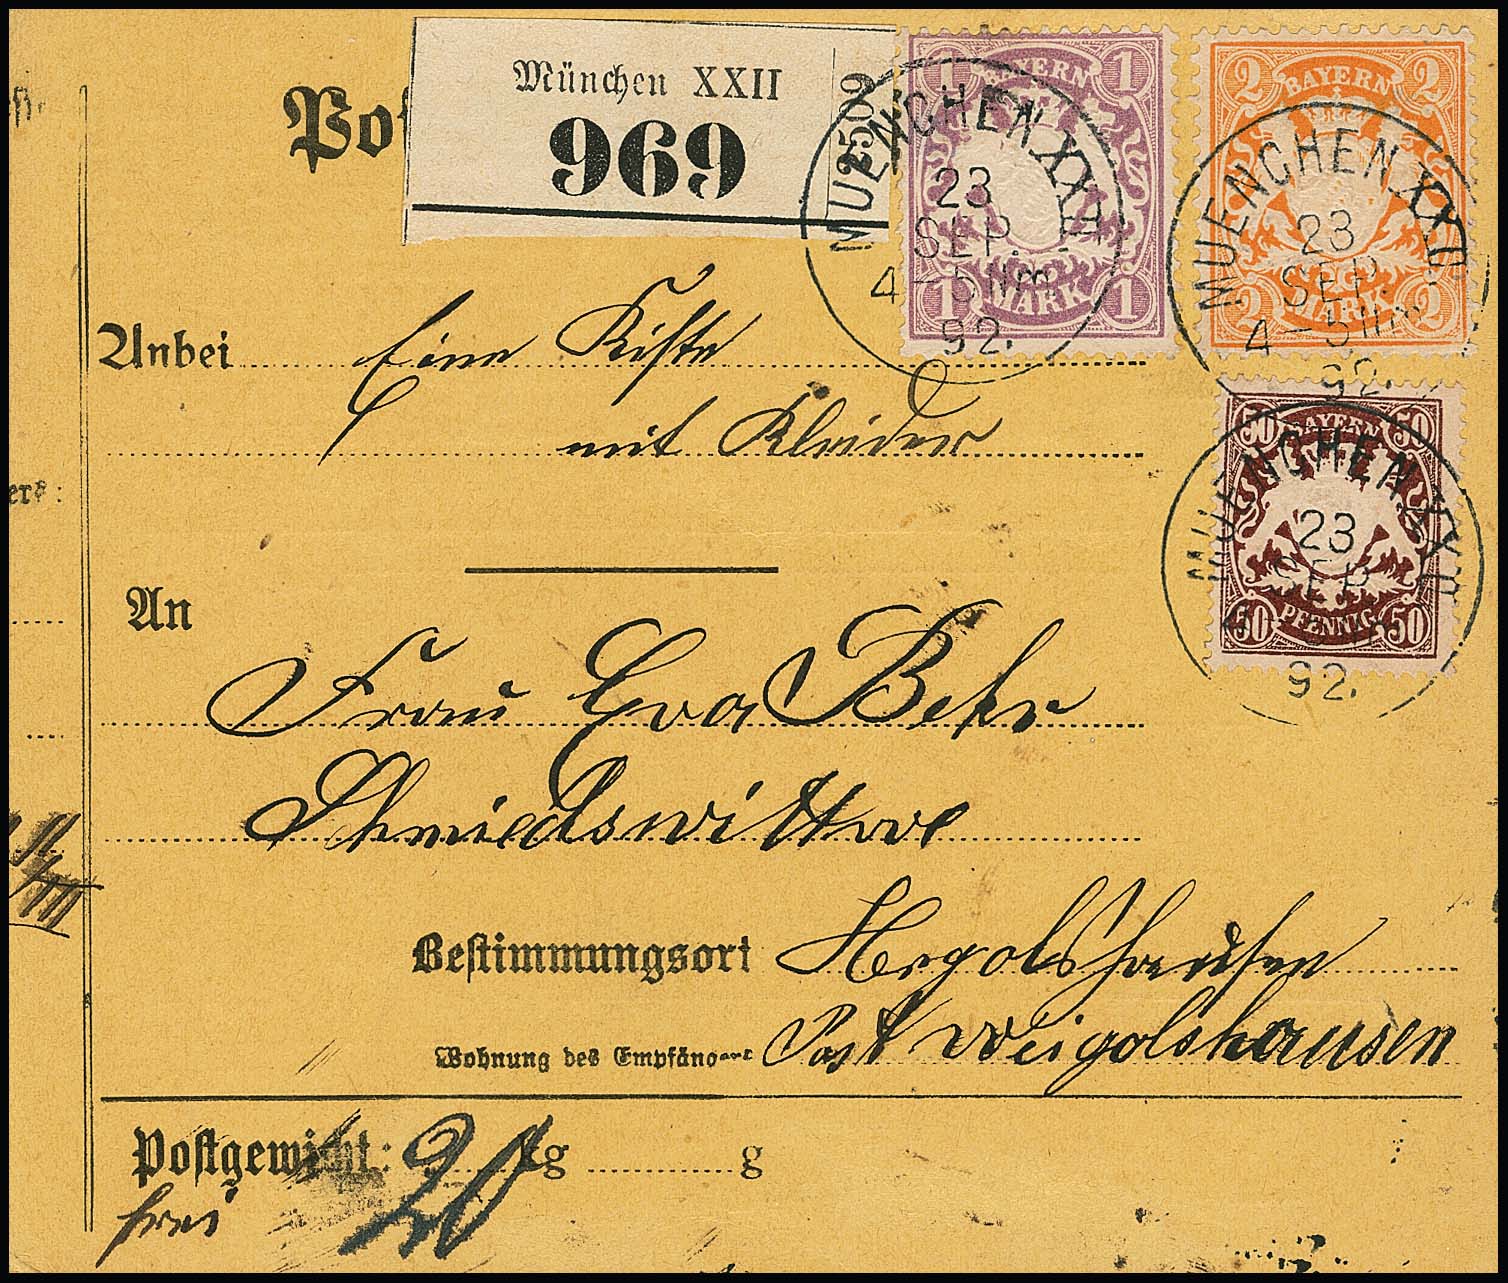 München XXII
969
2509
Po
1 BAYERN 1
1 MARK 1
MUENCHEN XXII
23
SEP.
4-5Nm
92.
2 BAYERN 2
2 MARK 2
MUENCHEN XXII
23
SEP.
4-5Nm
92.
50 BAYERN 50
50 PFENNIG 50
MUENCHEN XXII
23
SEP.
92.
Anbei Eine Kiste
mit Kleider
ers:
An
Frau Eva Behr
Schmiedswittwe
Bestimmungsort Hergolshausen
Wohnung des Empfängers Post Weigolshausen
Postgewicht: 20 kg g
frei